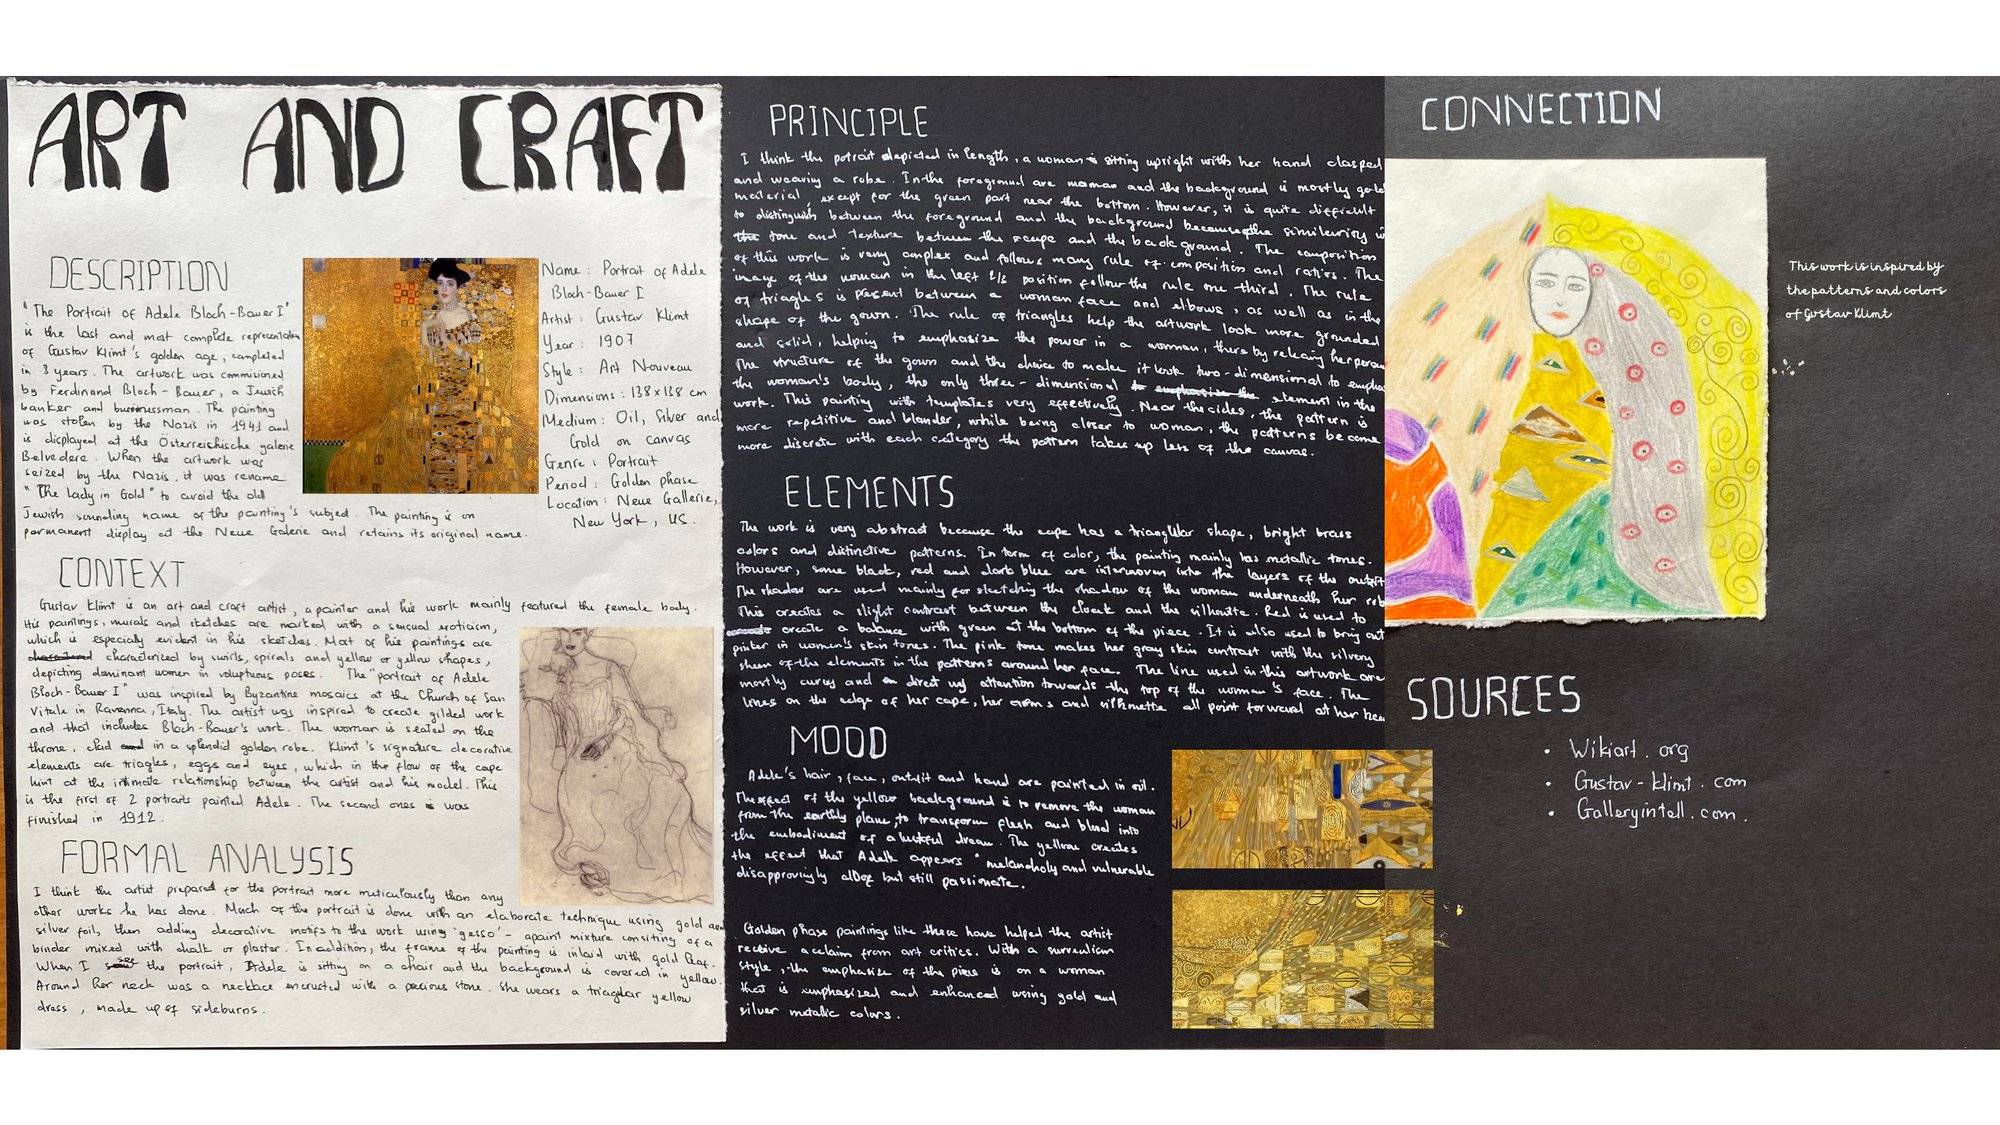 ART AND CRAFT
DESCRIPTION
"The Portrait of Adele Bloch-Bauer I"
is the last and most complete representation
of Gustav Klimt's golden age, completed
in 3 years. The artwork was commisioned
by Ferdinand Bloch-Bauer, a Jewish
banker and bussinussman. The painting
was stolen by the Nazis in 1941 and
is displayed at the Österreichische galerie
Belvedere. When the artwork was
seized by the Nazis, it was rename
"The lady in Gold" to avoid the old
Jewish sounding name of the painting's subject. The painting is on
parmanent display at the Neue Galerie and retains its original name.
Name: Portrait of Adele
Bloch-Bauer I
Artist: Gustav Klimt
Year: 1907
Style: Art Nouveau
Dimensions: 138x138 cm
Medium: Oil, Silver and
Gold on canvas
Genre: Portrait
Period: Golden phase
Location: Neue Gallerie,
New York, US.
CONTEXT
Gustav Klimt is an art and craft artist, a painter and his work mainly featured the female body.
His paintings, murals and sketches are marked with a sensual eroticism,
which is especially evident in his sketches. Most of his paintings are
characterized by swirls, spirals and yellow or yellow shapes,
depicting dominant women in voluptuous poses. The "portrait of Adele
Bloch-Bauer I" was inspired by Byzantine mosaics at the Church of San
Vitale in Ravenna, Italy. The artist was inspired to create gilded work
and that includes Bloch-Bauer's work. The woman is seated on the
throne, clad in a splendid golden robe. Klimt's signature decorative
elements are triagles, eggs and eyes, which in the flow of the cape
hint at the intimate relationship between the artist and his model. This
is the first of 2 portraits painted Adele. The second ones was
finished in 1912.
FORMAL ANALYSIS
I think the artist prepared for the portrait more meticulously than any
other works he has done. Much of the portrait is done with an elaborate technique using gold and
silver foil, then adding decorative motifs to the work using 'gesso' - apaint mixture consiting of a
binder mixed with chalk or plaster. In addition, the frame of the painting is inlaid with gold leaf.
When I see the portrait, Adele is sitting on a chair and the background is covered in yellow.
Around her neck was a necklace encrusted with a precious stone. She wears a triaglar yellow
dress, made up of sideburns.
PRINCIPLE
I think the potrait depicted in length, a woman sitting upright with her hand clasped
and wearing a robe. In the foreground are maman and the background is mostly gold
material, except for the green part near the bottom. However, it is quite difficult
to distinguish between the foreground and the background because the similarity in
tone and texture between the scape and the background. The composition
of this work is very complex and follows many rule of composition and ratios. The
image of the woman in the left 1/3 position follow the rule one-third. The rule
of triagles is present between a woman face and elbows, as well as in the
shape of the gown. The rule of triangles help the artwork look more grounded
and solid, helping to emphasize the power in a woman, there by relaxing her person
The structure of the gown and the choice to make it look two-dimensional to empha
the woman's body, the only three-dimensional element in the
work. This painting with templates very effectively. Near the sides, the pattern is
more repetitive and blander, while being closer to woman, the patterns become
more discrete with each category the pattern takes up less of the canvas.
ELEMENTS
The work is very abstract because the cape has a trianglular shape, bright brass
colors and distinctive patterns. In term of color, the painting mainly has metallic tones.
However, some black, red and dark blue are interwoven into the layers of the outfit
The shadow are used mainly for sketching the shadow of the woman underneath her rob
This creates a slight contrast between the cloak and the silhouite. Red is used to
create a balance with green at the bottom of the piece. It is also used to bring out
pinker in women's skin tones. The pink tone makes her gray skin contrast with the silvery
sheen of the elements in the patterns around her face. The line used in this artwork are
mostly curvy and direct my attention towards the top of the woman's face. The
lines on the edge of her cape, her arms and silhouette all point forward at her hea
MOOD
Adele's hair, face, outfit and hand are painted in oil.
The effect of the yellow background is to remove the woman
from the earthly plane, to transform flesh and blood into
the embodiment of a lustful dream. The yellow creates
the effect that Adele appears "melancholy and vulnerable
disapprovingly aloof but still passionate.
Golden phase paintings like these have helped the artist
receive acclaim from art critics. With a surrealism
style, the emphasize of the piece is on a woman
that is emphasized and enhanced using gold and
silver metallic colors.
CONNECTION
This work is inspired by
the patterns and colors
of Gustav Klimt
SOURCES
• Wikiart.org
• Gustav-klimt.com
• Galleryintell.com.